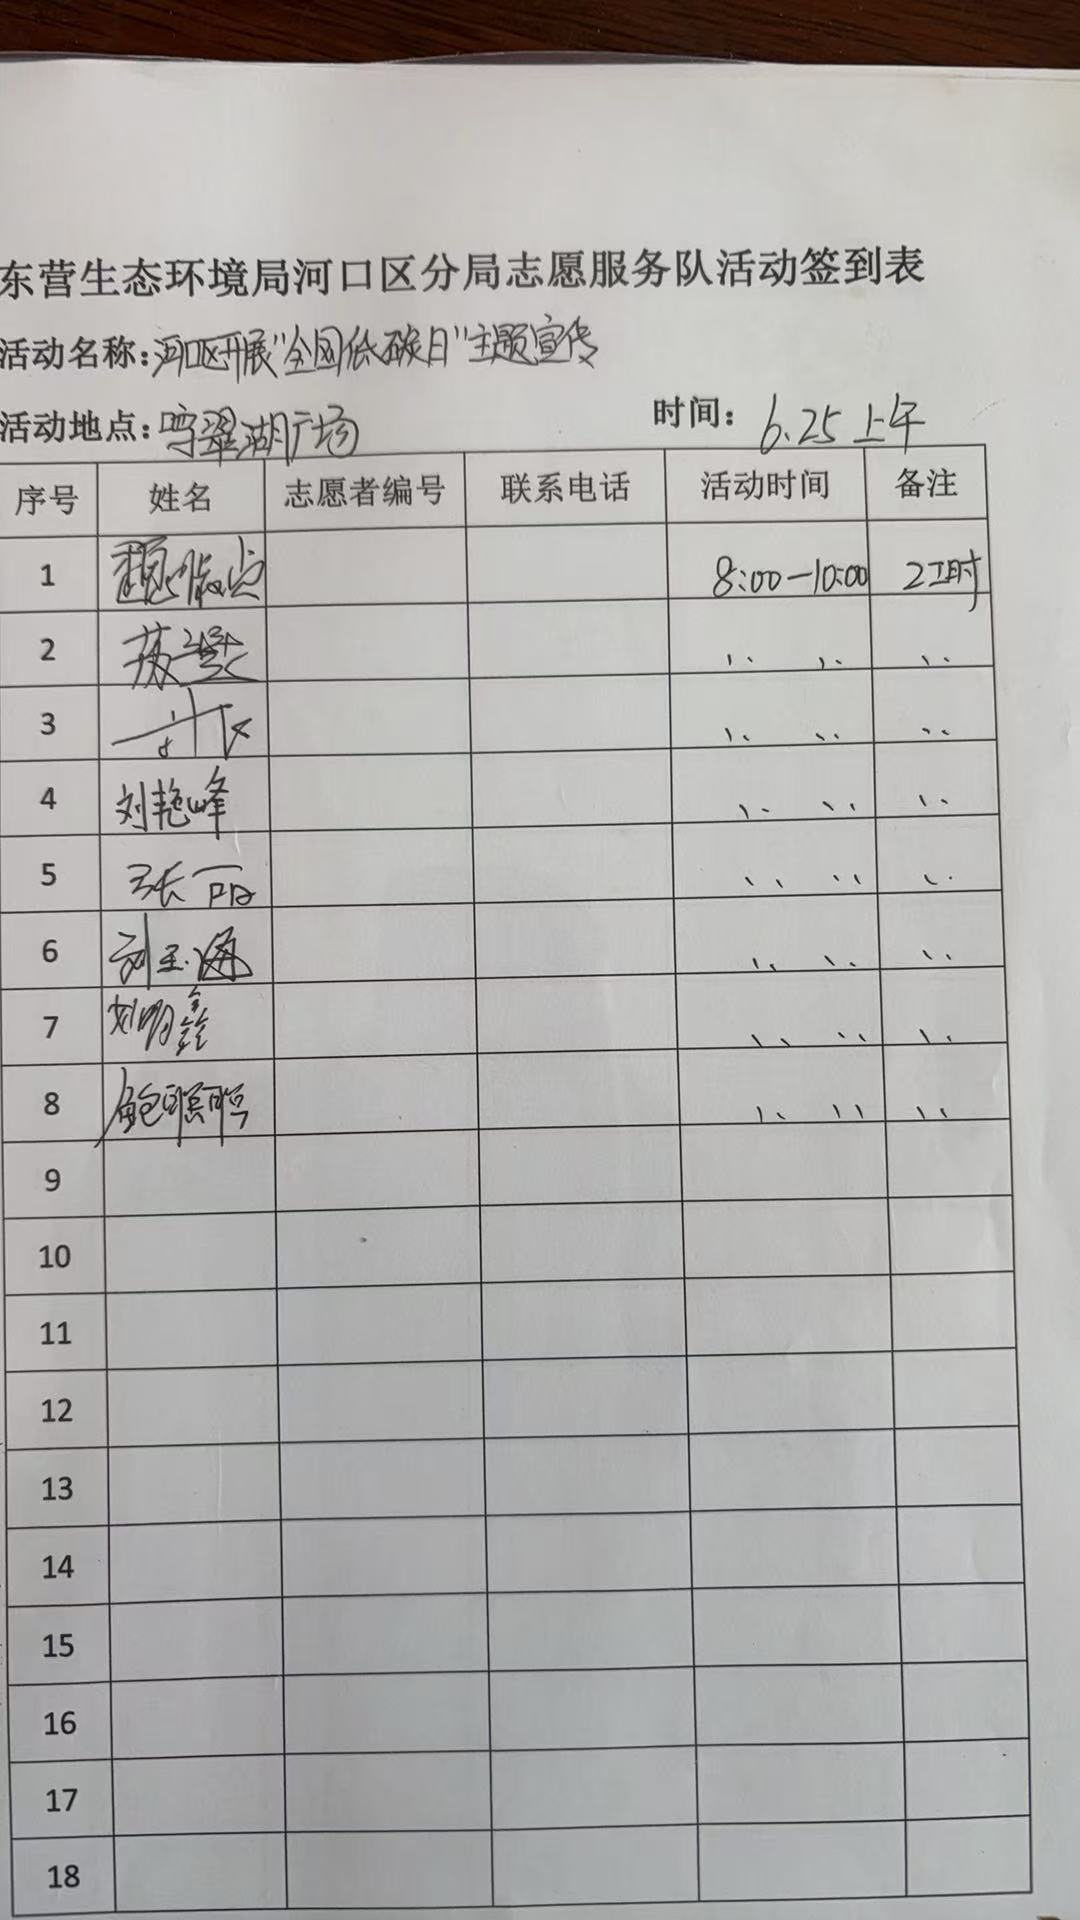 东营生态环境局河口区分局志愿服务队活动签到表
活动名称:河口区开展"全国低碳日"主题宣传
活动地点:鸣翠湖广场 时间: 6.25 上午
序号 姓名 志愿者编号 联系电话 活动时间 备注
1 8:00—10:00 2工时
2
3
4 刘艳峰
5 张丽
6
7 刘明鑫
8 鲍
9
10
11
12
13
14
15
16
17
18